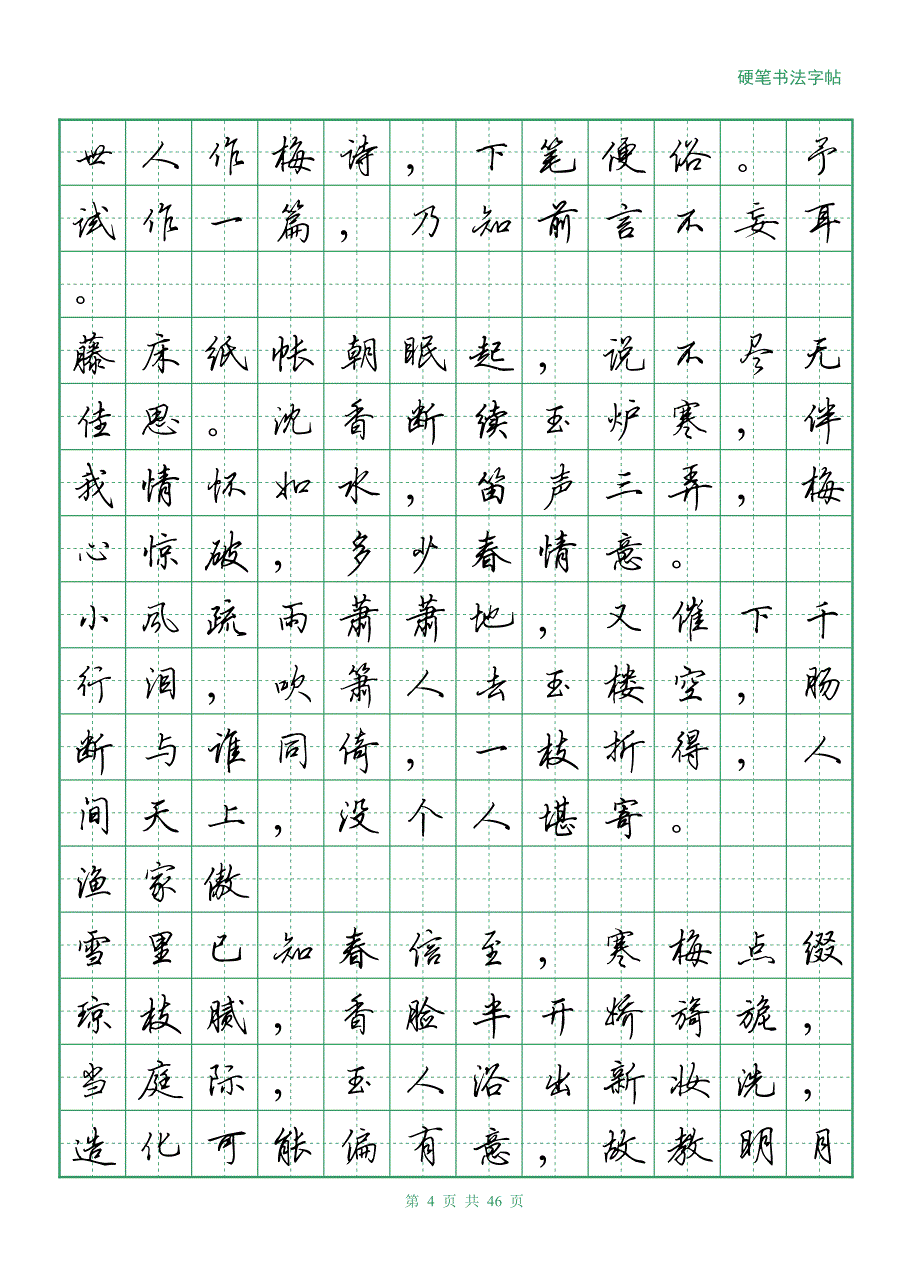 硬笔书法字帖
世人作梅诗，下笔便俗。予
试作一篇，乃知前言不妄耳
。
藤床纸帐朝眠起，说不尽无
佳思。沈香断续玉炉寒，伴
我情怀如水，笛声三弄，梅
心惊破，多少春情意。
小风疏雨萧萧地，又催下千
行泪，吹箫人去玉楼空，肠
断与谁同倚，一枝折得，人
间天上，没个人堪寄。
渔家傲
雪里已知春信至，寒梅点缀
琼枝腻，香脸半开娇旖旎，
当庭际，玉人浴出新妆洗，
造化可能偏有意，故教明月
第 4 页 共 46 页